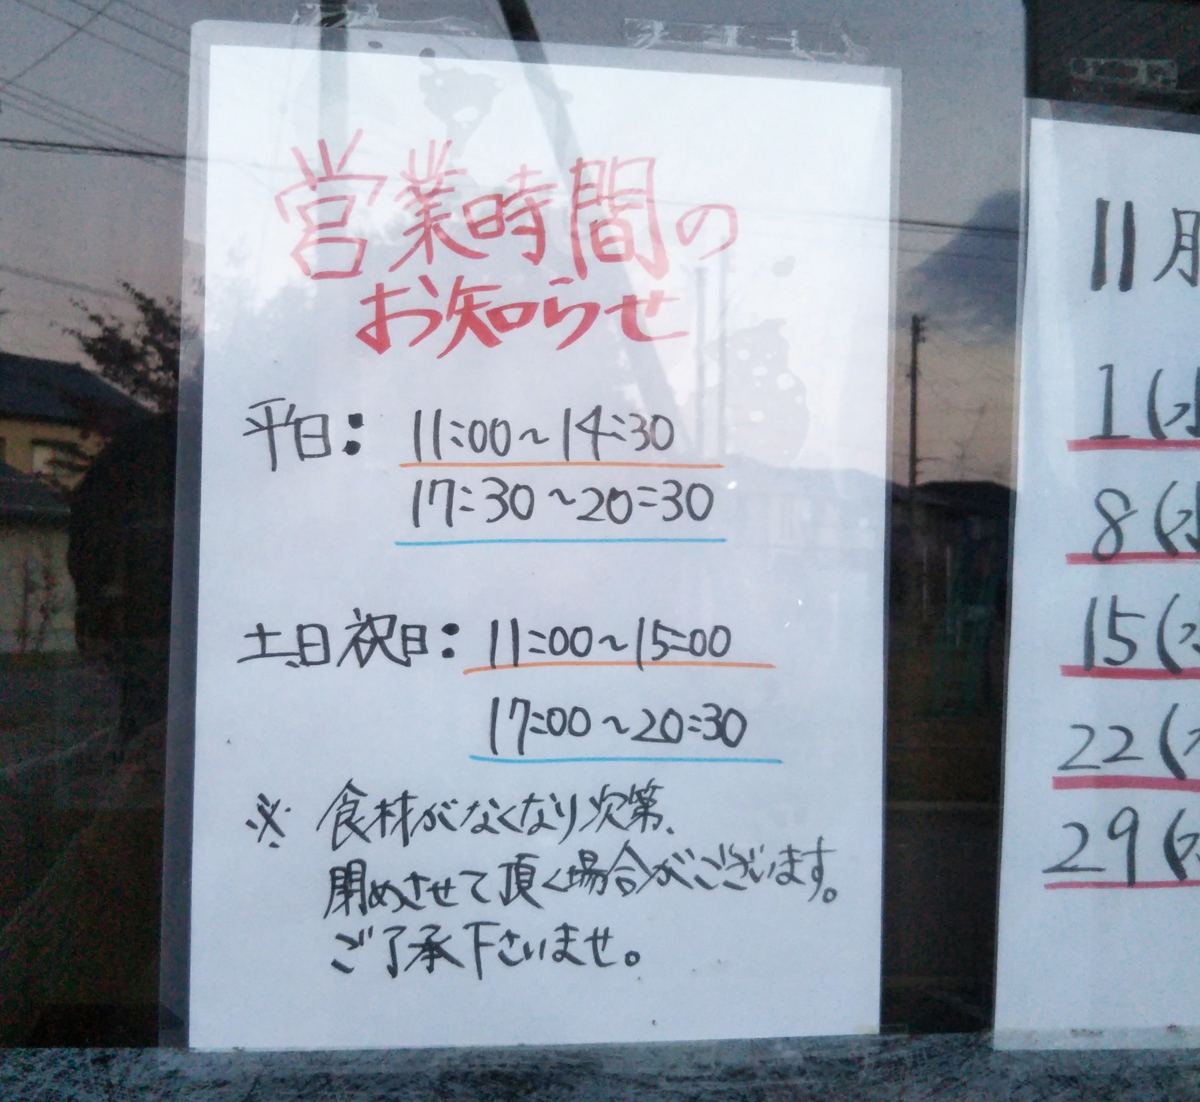 営業時間の
お知らせ
平日： 11:00～14:30
17:30～20:30
土、日祝日： 11:00～15:00
17:00～20:30
※ 食材がなくなり次第、
閉めさせて頂く場合がございます。
ご了承下さいませ。
11月
1(水
8(水
15(水
22(水
29(水